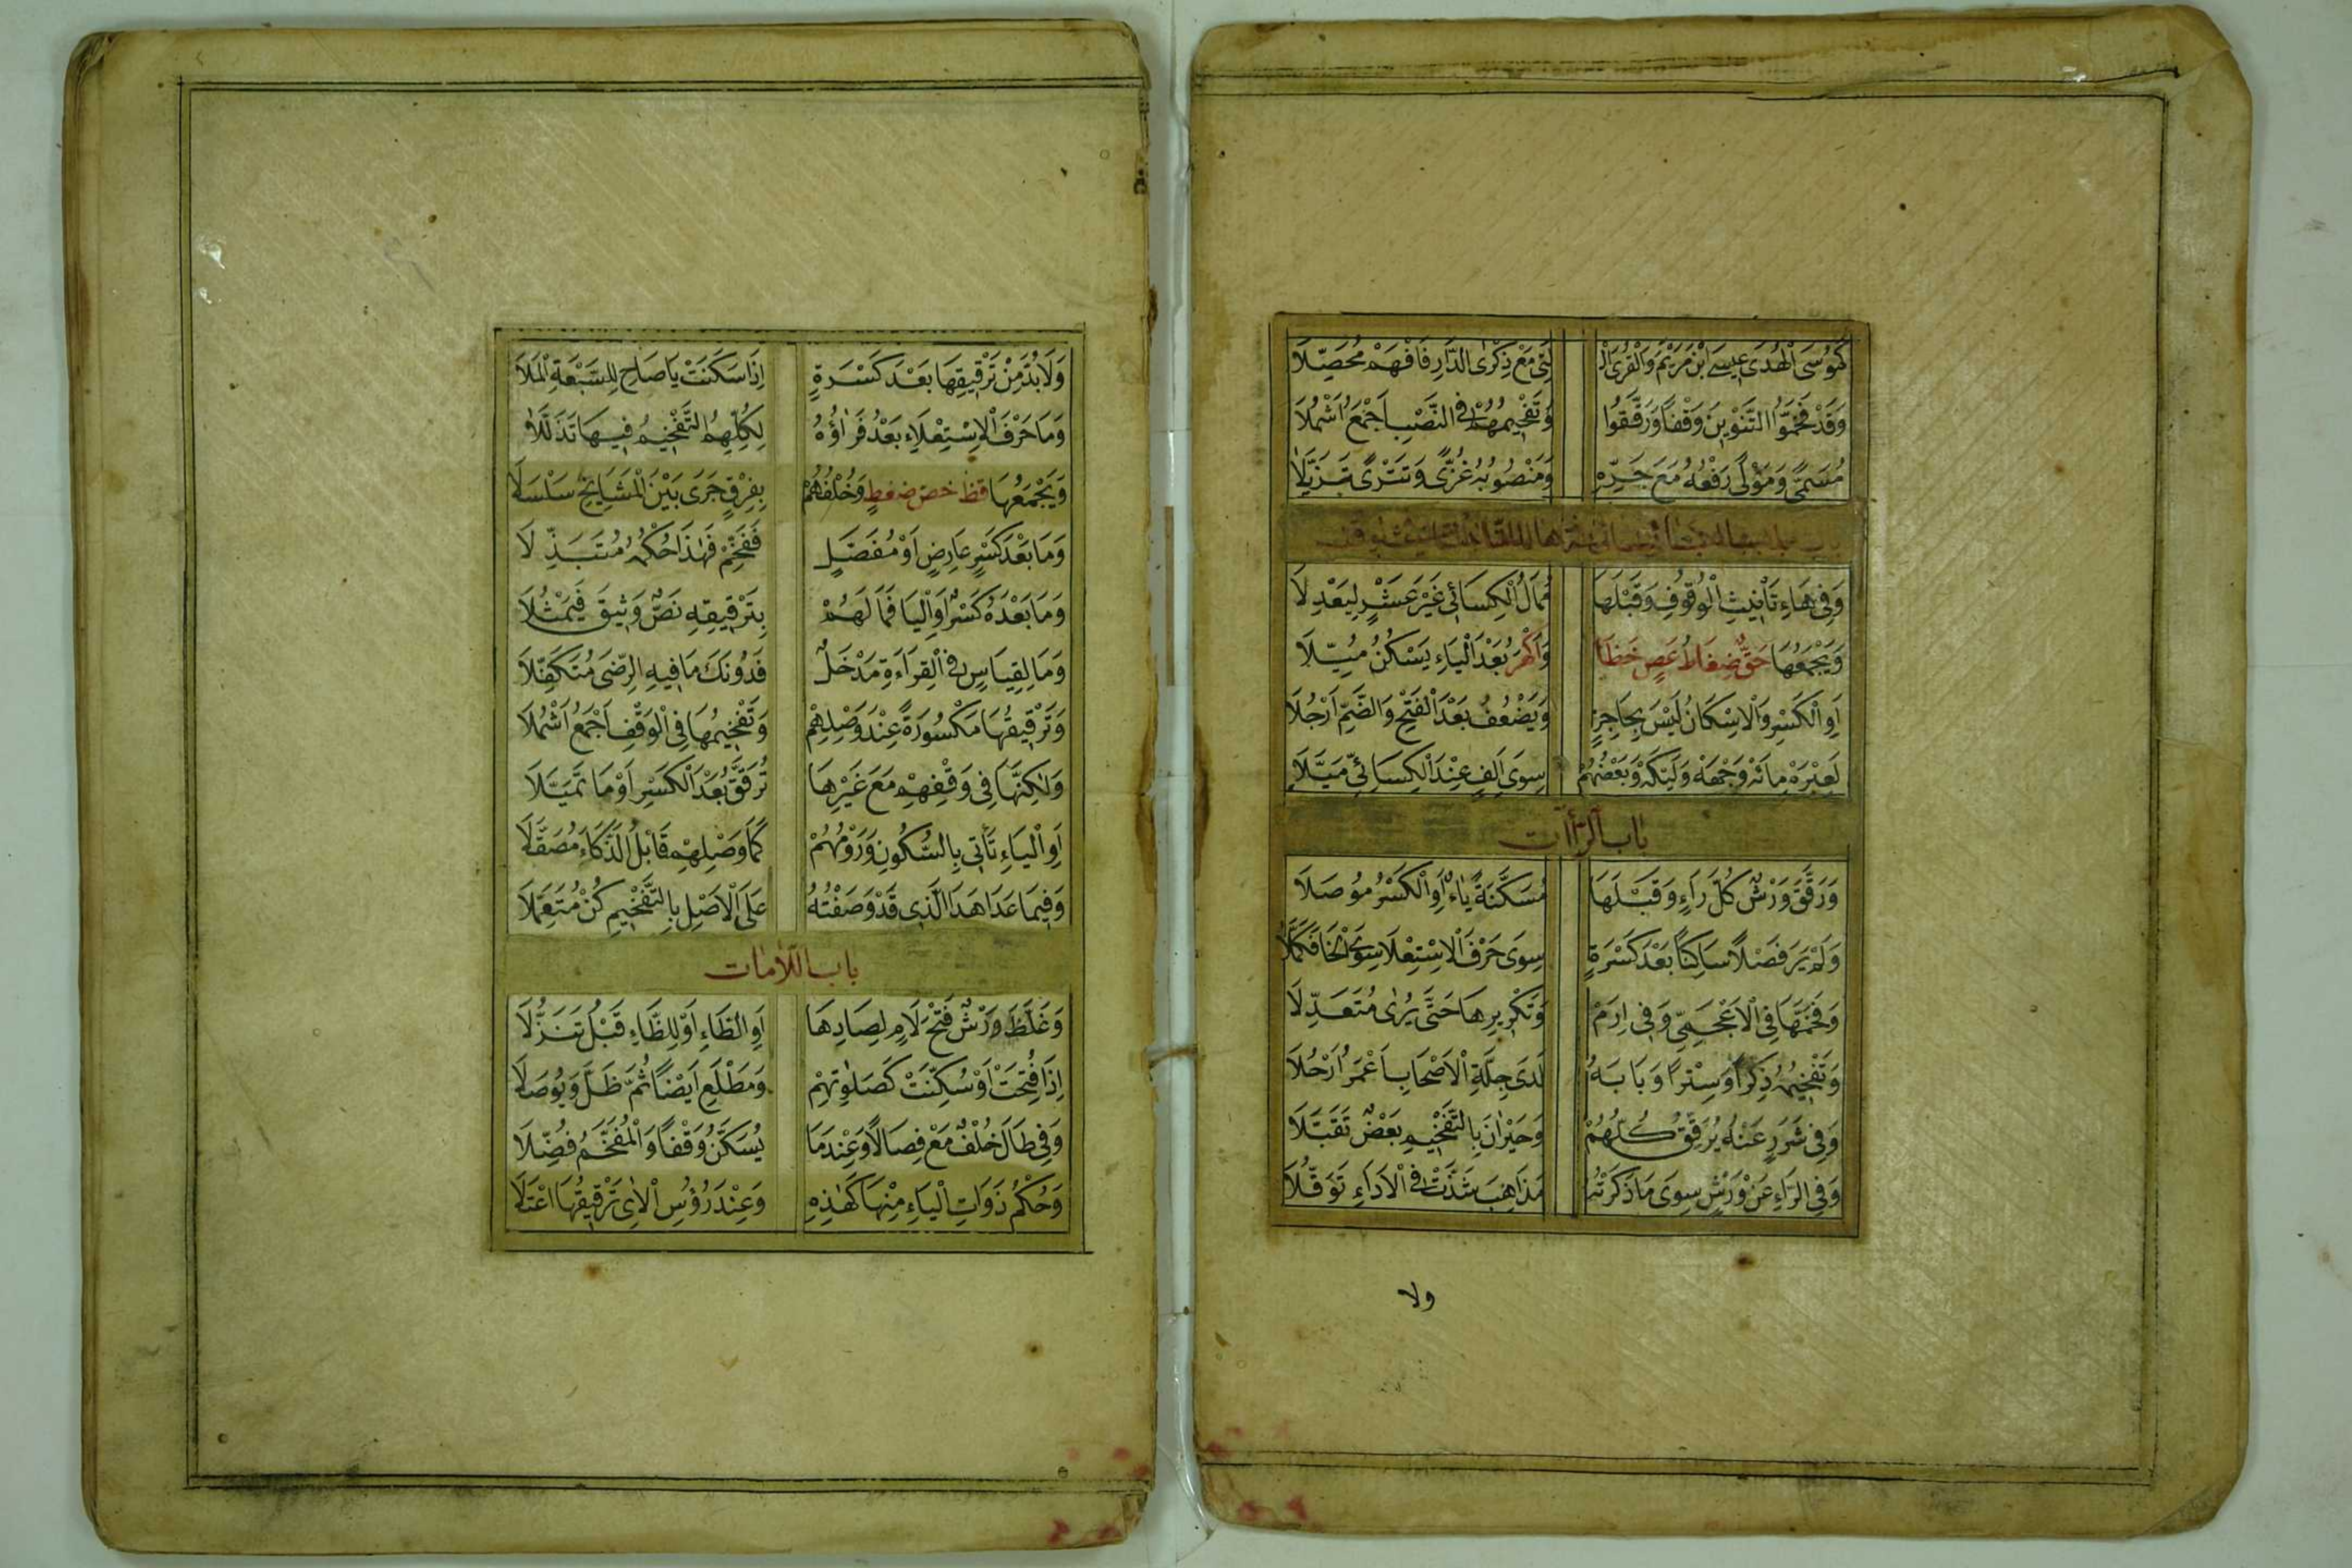 كَمُوسَى الْهُدَى عِيسَى ابْنِ مَرْيَمَ وَالْقُرَى الْ لَتِي مَعَ ذِكْرَى الدَّارِ فَافْهَمْ مُحَصِّلَا
وَقَدْ فَخَّمُوا التَّنْوِينَ وَقْفًا وَرَقَّقُوا وَتَفْخِيمُهُمْ فِي النَّصْبِ أَجْمَعُ أَشْمُلَا
مُسَمًّى وَمَوْلًى رَفْعُهُ مَعَ جَرِّهِ وَمَنْصُوبُهُ غُزًّى وَتَتْرًى تَزَيَّلَا
وَفِي هَاءِ تَأْنِيثِ الْوُقُوفِ وَقَبْلَهَا مُمَالُ الْكِسَائِي غَيْرَ عَشْرٍ لِيَعْدِلَا
وَيَجْمَعُهَا حَقٌّ ضِغَاطُ عَصٍ خَظَا وَأَكْهَرُ بَعْدَ الْيَاءِ يَسْكُنُ مُيِّلَا
أَوِ الْكَسْرِ وَالْإِسْكَانُ لَيْسَ بِحَاجِزٍ وَيَضْعُفُ بَعْدَ الْفَتْحِ وَالضَّمِّ أَرْجُلَا
لَعِبْرَهْ مِائَهْ وِجْهَهْ وَلَيْكَهْ وَبَعْضُهُمْ سِوَى أَلِفٍ عِنْدَ الْكِسَائِيِّ مَيَّلَا
بَابُ الرَّاآتِ
وَرَقَّقَ وَرْشٌ كُلَّ رَاءٍ وَقَبْلَهَا مُسَكَّنَةً يَاءٌ أَوِ الْكَسْرُ مُوصَلَا
وَلَمْ يَرَ فَصْلًا سَاكِنًا بَعْدَ كَسْرَةٍ سِوَى حَرْفِ الْاِسْتِعْلَا سِوَى الْخَا فَكَمَّلَا
وَفَخَّمَهَا فِي الْأَعْجَمِيِّ وَفِي إِرَمْ وَتَكْرِيرِهَا حَتَّى يُرَى مُتَعَدِّلَا
وَتَفْخِيمُهُ ذِكْرًا وَسِتْرًا وَبَابَهُ لَدَى جِلَّةِ الْأَصْحَابِ أَعْمَرُ أَرْحُلَا
وَفِي شَرَرٍ عَنْهُ يُرَقِّقُ كُلُّهُمْ وَحَيْرَانَ بِالتَّفْخِيمِ بَعْضٌ تَقَبَّلَا
وَفِي الرَّاءِ عَنْ وَرْشٍ سِوَى مَا ذَكَرْتُهُ مَذَاهِبُ شَذَّتْ فِي الْأَدَاءِ تَوَقُّلَا
ولا
وَلَا بُدَّ مِنْ تَرْقِيقِهَا بَعْدَ كَسْرَةٍ إِذَا سَكَنَتْ يَا صَاحِ لِلسَّبْعَةِ الْمَلَا
وَمَا حَرْفُ الْاِسْتِعْلَاءِ بَعْدُ فَرَاؤُهُ لِكُلِّهِمُ التَّفْخِيمُ فِيهَا تَذَلَّلَا
وَيَجْمَعُهَا قِظْ خُصَّ ضَغْطٍ وَخُلْفُهُمْ بِفِرْقٍ جَرَى بَيْنَ الْمَشَايِخِ سَلْسَلَا
وَمَا بَعْدَ كَسْرٍ عَارِضٍ أَوْ مُفَصَّلٍ فَفَخِّمْ فَهَذَا حُكْمُهُ مُتَبَذِّلَا
وَمَا بَعْدَهُ كَسْرٌ أَوِ الْيَا فَمَا لَهُمْ بِتَرْقِيقِهِ نَصٌّ وَثِيقٌ فَيَمْثُلَا
وَمَا لِقِيَاسٍ فِي الْقِرَاءَةِ مَدْخَلٌ فَدُونَكَ مَا فِيهِ الرِّضَى مُتَكَفِّلَا
وَتَرْقِيقُهَا مَكْسُورَةً عِنْدَ وَصْلِهِمْ وَتَفْخِيمُهَا فِي الْوَقْفِ أَجْمَعُ أَشْمُلَا
وَلَكِنَّهَا فِي وَقْفِهِمْ مَعَ غَيْرِهَا تُرَقَّقُ بَعْدَ الْكَسْرِ أَوْ مَا تَمَيَّلَا
أَوِ الْيَاءِ تَأْتِي بِالسُّكُونِ وَرَوْمُهُمْ كَمَا وَصْلِهِمْ فَابْلُ الذَّكَاءَ مُصَقَّلَا
وَفِيمَا عَدَا هَذَا الَّذِي قَدْ وَصَفْتُهُ عَلَى الْأَصْلِ بِالتَّفْخِيمِ كُنْ مُتَعَمِّلَا
بَابُ اللَّامَاتِ
وَغَلَّظَ وَرْشٌ فَتْحَ لَامٍ لِصَادِهَا أَوِ الطَّاءِ أَوْ لِلظَّاءِ قَبْلُ تَنَزُّلَا
إِذَا فُتِحَتْ أَوْ سُكِّنَتْ كَصَلَوتِهِمْ وَمَطْلَعِ أَيْضًا ثُمَّ ظَلَّ وَيُوصَلَا
وَفِي طَالَ خُلْفٌ مَعْ فِصَالًا وَعِنْدَمَا يُسَكَّنُ وَقْفًا وَالْمُفَخَّمُ فُضِّلَا
وَحُكْمُ ذَوَاتِ الْيَاءِ مِنْهَا كَهَذِهِ وَعِنْدَ رُؤُسِ الْآيِ تَرْقِيقُهَا اعْتَلَا